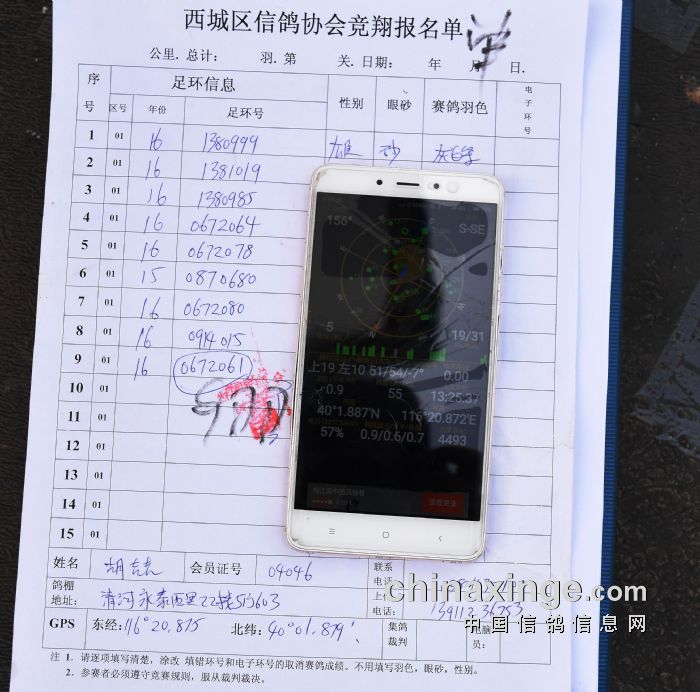 西城区信鸽协会竞翔报名单
公里. 总计: 羽. 第 关. 日期: 年 月 日.
序号 足环信息 性别 眼砂 赛鸽羽色 电子环号
区号 年份 足环号
1 01 16 1380999 雄 砂
2 01 16 1381019
3 01 16 1380985
4 01 16 0672064
5 01 16 0672078
6 01 15 0870680
7 01 16 0672080
8 01 16 0914015
9 01 16 0672061
10 01
11 01
12 01
13 01
14 01
15 01
156° S-SE
5 19/31
上19 左10 51/54/-7° 0.00
0.9 55 13:25:37
40°1.887'N 116°20.872'E
57% 0.9/0.6/0.7 4493
查看更多
姓名 会员证号 04046 联系
电话
鸽棚
地址: 清河永泰西里22楼 603
电话: 13911236753
GPS 东经: 116°20.875 北纬: 40°01.879' 集鸽
裁判 员:
chinaxinge.com
中国信鸽信息网
注 1. 请逐项填写清楚,涂改 填错环号和电子环号的取消赛鸽成绩。不用填写羽色,眼砂,性别。
2. 参赛者必须遵守竞赛规则,服从裁判裁决。